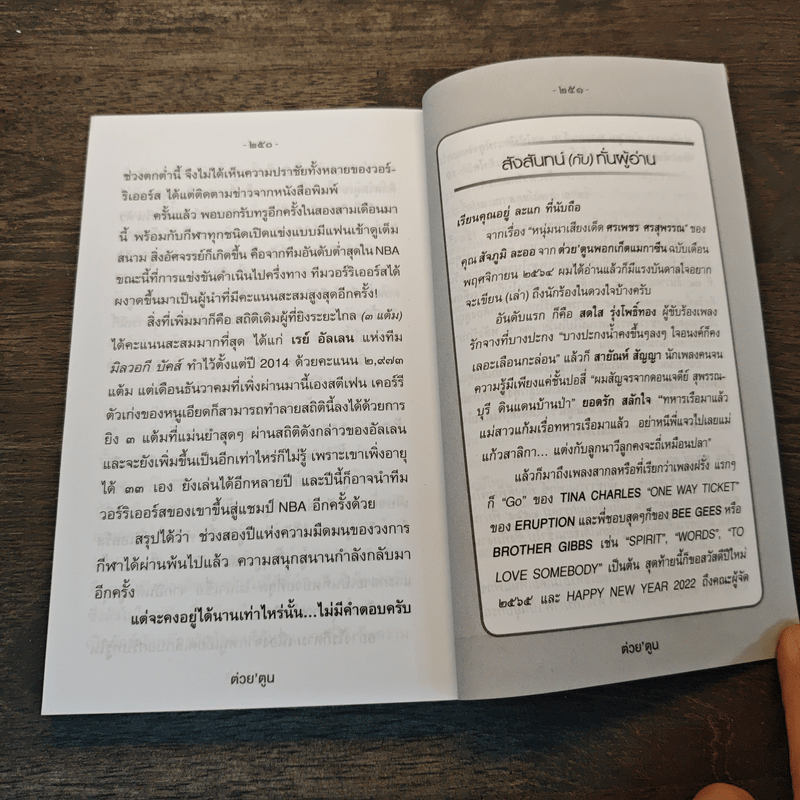 - ๒๕๐ -
ช่วงตกต่ำนี้ จึงไม่ได้เห็นความปราชัยทั้งหลายของวอร์-
ริเออร์ส ได้แต่ติดตามข่าวจากหนังสือพิมพ์
ครั้นแล้ว พอบอกรับทรูอีกครั้งในสองสามเดือนมา
นี้ พร้อมกับกีฬาทุกชนิดเปิดแข่งแบบมีแฟนเข้าดูเต็ม
สนาม สิ่งอัศจรรย์ก็เกิดขึ้น คือจากทีมอันดับต่ำสุดใน NBA
ขณะนี้ที่การแข่งขันดำเนินไปครึ่งทาง ทีมวอร์ริเออร์สได้
ผงาดขึ้นมาเป็นผู้นำที่มีคะแนนสะสมสูงสุดอีกครั้ง!
สิ่งที่เพิ่มมาก็คือ สถิติเดิมผู้ที่ยิงระยะไกล (๓ แต้ม)
ได้คะแนนสะสมมากที่สุด ได้แก่ เรย์ อัลเลน แห่งทีม
มิลวอกี บัคส์ ทำไว้ตั้งแต่ปี 2014 ด้วยคะแนน ๒,๙๗๓
แต้ม แต่เดือนธันวาคมที่เพิ่งผ่านมานี้เองสตีเฟน เคอร์รี
ตัวเก่งของหนูเอียดก็สามารถทำลายสถิตินี้ลงได้ด้วยการ
ยิง ๓ แต้มที่แม่นยำสุดๆ ผ่านสถิติดังกล่าวของอัลเลน
และจะยังเพิ่มขึ้นเป็นอีกเท่าไหร่ก็ไม่รู้ เพราะเขาเพิ่งอายุ
ได้ ๓๓ เอง ยังเล่นได้อีกหลายปี และปีนี้ก็อาจนำทีม
วอร์ริเออร์สของเขาขึ้นสู่แชมป์ NBA อีกครั้งด้วย
สรุปได้ว่า ช่วงสองปีแห่งความมืดมนของวงการ
กีฬาได้ผ่านพ้นไปแล้ว ความสนุกสนานกำลังกลับมา
อีกครั้ง
แต่จะคงอยู่ได้นานเท่าไหร่นั้น...ไม่มีคำตอบครับ
ต่วย'ตูน
- ๒๕๑ -
สังสันทน์ (กับ) ทั่นผู้อ่าน
เรียนคุณอยู่ ละแก ที่นับถือ
จากเรื่อง "หนุ่มนาเสียงเด็ด ศรเพชร ศรสุพรรณ" ของ
คุณ สัจภูมิ ละออ จาก ต่วย'ตูนพอกเก็ตแมกาซีน ฉบับเดือน
พฤศจิกายน ๒๕๖๔ ผมได้อ่านแล้วก็มีแรงบันดาลใจอยาก
จะเขียน (เล่า) ถึงนักร้องในดวงใจบ้างครับ
อันดับแรก ก็คือ สดใส รุ่งโพธิ์ทอง ผู้ขับร้องเพลง
รักจางที่บางปะกง "บางปะกงน้ำคงขึ้นๆลงๆ ใจอนงค์ก็คง
เลอะเลือนกะล่อน" แล้วก็ สายัณห์ สัญญา นักเพลงคนจน
ความรู้มีเพียงแค่ชั้นปอสี่ "ผมสัญจรจากดอนเจดีย์ สุพรรณ-
บุรี ดินแดนบ้านป่า" ยอดรัก สลักใจ "ทหารเรือมาแล้ว
แม่สาวแก้มเรื่อทหารเรือมาแล้ว อย่าหนีพี่แจวไปเลยแม่
แก้วสาลิกา... แต่งกับลูกนาวีลูกคงจะถี่เหมือนปลา"
แล้วก็มาถึงเพลงสากลหรือที่เรียกว่าเพลงฝรั่ง แรกๆ
ก็ "Go" ของ TINA CHARLES "ONE WAY TICKET"
ของ ERUPTION และพี่ชอบสุดๆก็ของ BEE GEES หรือ
BROTHER GIBBS เช่น "SPIRIT", "WORDS", "TO
LOVE SOMEBODY" เป็นต้น สุดท้ายนี้ก็ขอสวัสดีปีใหม่
๒๕๖๕ และ HAPPY NEW YEAR 2022 ถึงคณะผู้จัด
ต่วย'ตูน